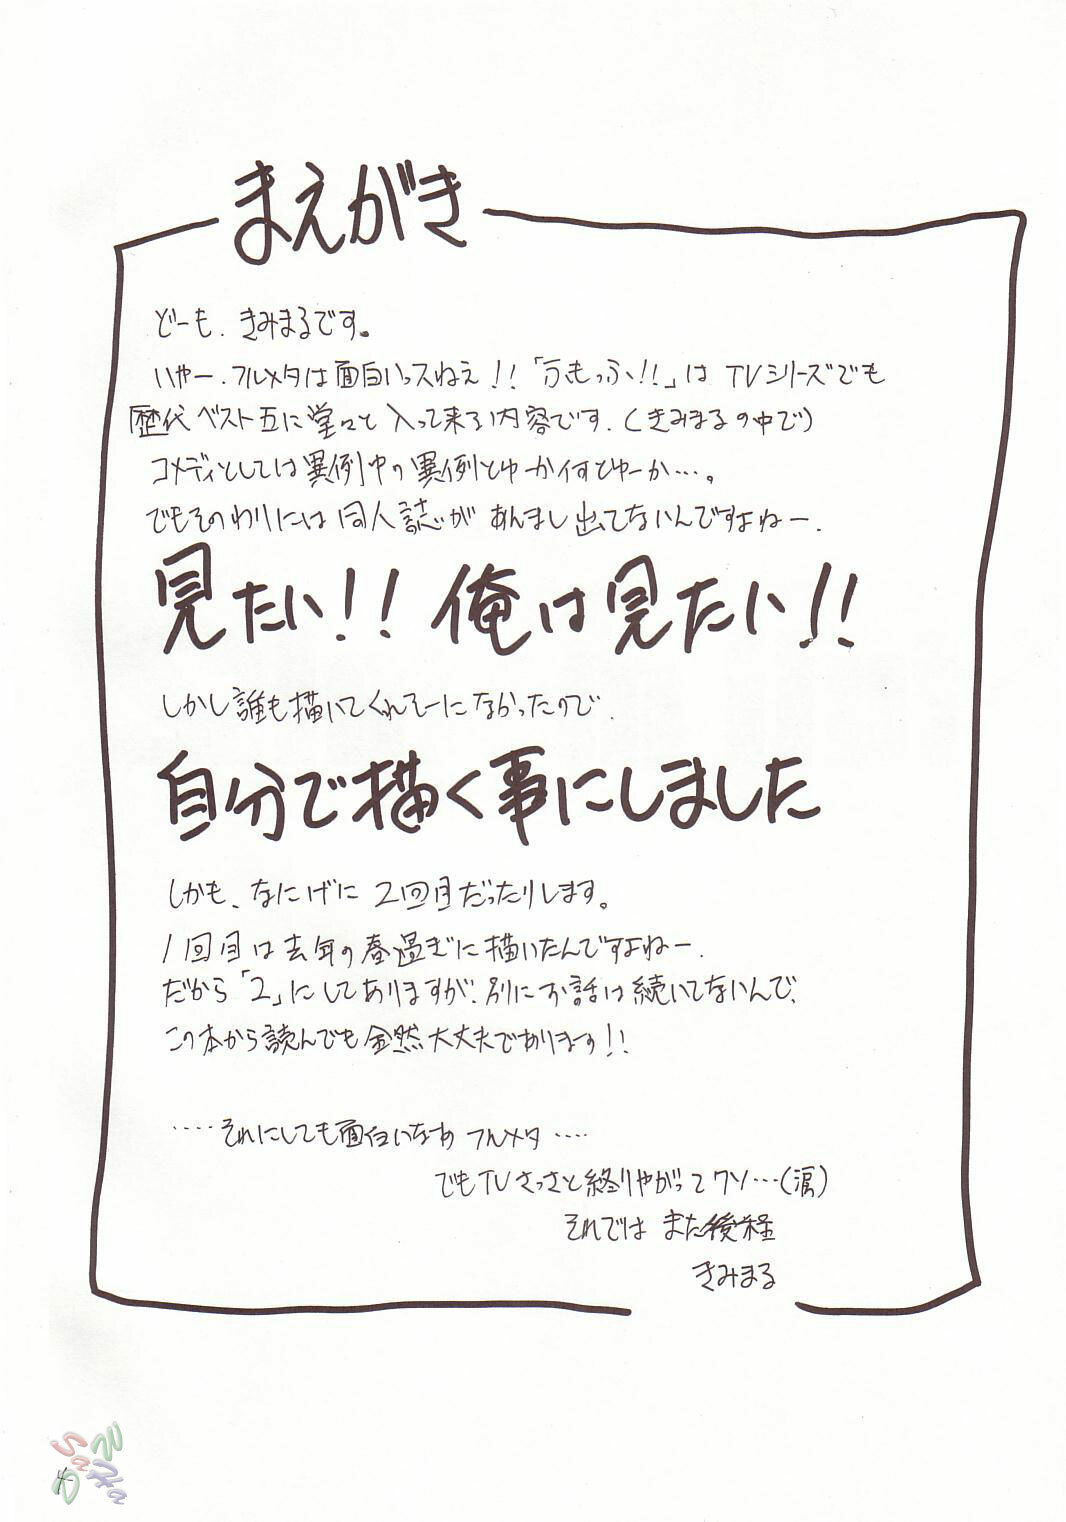 まえがき
どーも、きみまるです。
いやー、フルメタは面白いっスねえ!!「ふもっふ!!」は TVシリーズでも
歴代ベスト五に堂々と入って来る内容です。(きみまるの中で)
コメディとしては異例中の異例とゆーか
でもそのわりには同人誌があんまし出てないんですよねー。
見たい!! 俺は見たい!!
しかし誰も描いてくれそーになかったので、
自分で描く事にしました
しかも、なにげに2回目だったりします。
1回目は去年の春過ぎに描いたんですよねー。
だから「2」にしてありますが、別にお話は続いてないんで、
この本から読んでも全然大丈夫であります!!
‥‥それにしても面白いなあ フルメタ‥‥
でもTVさっさと終りやがって クソ…(涙)
それでは また後程
きみまる
4